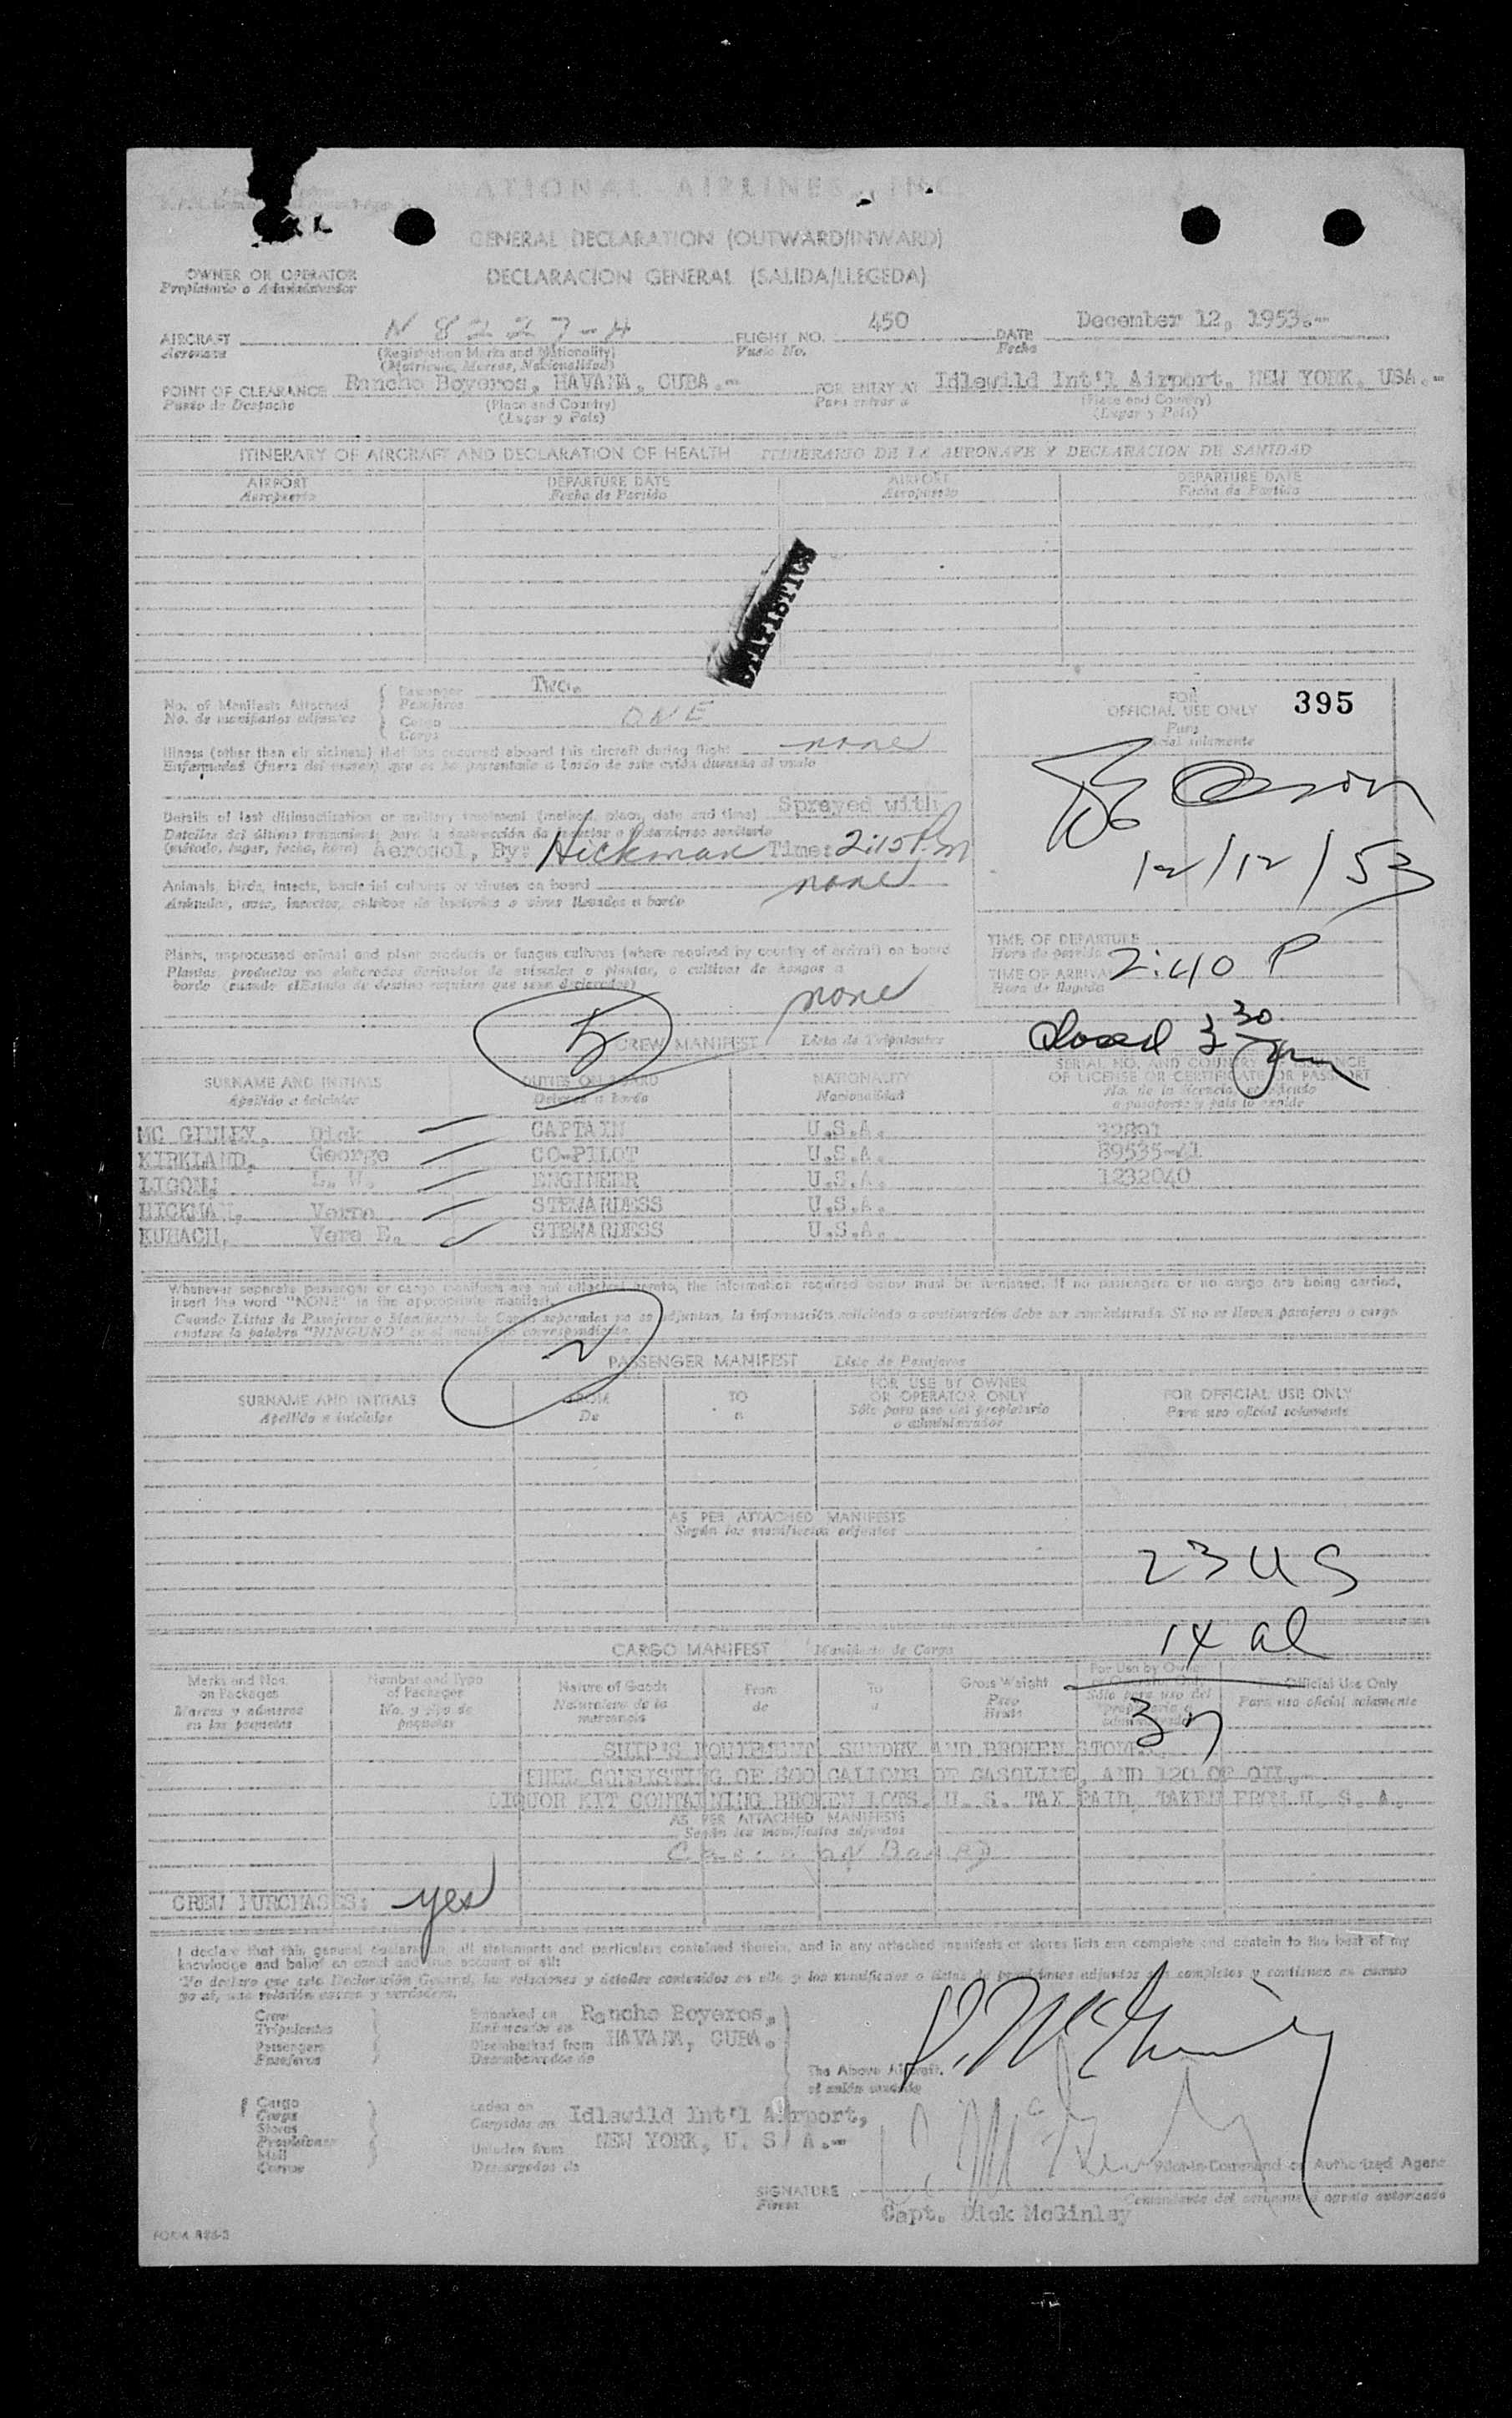 NATIONAL AIRLINES, INC.
GENERAL DECLARATION (OUTWARD/INWARD)
OWNER OR OPERATOR
Propietario o Administrador
DECLARACION GENERAL (SALIDA/LLEGEDA)
AIRCRAFT N 8227-H FLIGHT NO. 450 DATE December 12, 1953.--
Aeronave (Registration Marks and Nationality) Vuelo No. Fecha
(Matricula, Marcas, Nacionalidad)
POINT OF CLEARANCE Rancho Boyeros, HAVANA, CUBA.-- FOR ENTRY AT Idlewild Int'l Airport, NEW YORK, USA.--
Punto de Despacho (Place and Country) Para entrar a (Place and Country)
(Lugar y Pais) (Lugar y Pais)
ITINERARY OF AIRCRAFT AND DECLARATION OF HEALTH ITINERARIO DE LA AERONAVE Y DECLARACION DE SANIDAD
AIRPORT DEPARTURE DATE AIRPORT DEPARTURE DATE
Aeropuerto Fecha de Partida Aeropuerto Fecha de Partida
STATISTICS
No. of Manifests Attached Passenger Two.
No. de manifiestos adjuntos Pasajeros
Cargo ONE
Carga
FOR
OFFICIAL USE ONLY 395
Para
solamente
Illness (other than air sickness) that has occurred aboard this aircraft during flight none
Enfermedad (fuera del mareo) que se ha presentado a bordo de este avión durante el vuelo
12/12/53
Details of last disinsectization or sanitary treatment (method, place, date and time) Sprayed with
Detalles del último tratamiento para la destrucción de insectos o tratamiento sanitario
(método, lugar, fecha, hora) Aerosol, By: Hickman Time: 2:15 P.m
Animals, birds, insects, bacterial cultures or viruses on board none
Animales, aves, insectos, cultivos de bacterias o virus llevados a bordo
Plants, unprocessed animal and plant products or fungus cultures (where required by country of arrival) on board
Plantas, productos no elaborados derivados de animales o plantas, o cultivos de hongos a
bordo (cuando el Estado de destino requiere que sean declarados) none
TIME OF DEPARTURE
Hora de partida
TIME OF ARRIVAL 2:40 P
Hora de llegada
closed 3 30 pm
5
CREW MANIFEST Lista de Tripulantes
SURNAME AND INITIALS DUTIES ON BOARD NATIONALITY SERIAL NO. AND COUNTRY OF ISSUANCE
OF LICENSE OR CERTIFICATE OR PASSPORT
Apellido e iniciales Deberes a bordo Nacionalidad
MC GINLEY, Dick CAPTAIN U.S.A. 32891
KIRKLAND, George CO-PILOT U.S.A. 89535-41
LIGON, L. W. ENGINEER U.S.A. 1232040
HICKMAN, Verna STEWARDESS U.S.A.
KUBACH, Vera E. STEWARDESS U.S.A.
Whenever separate passenger or cargo manifests are not attached hereto, the information required below must be furnished. If no passengers or no cargo are being carried,
insert the word "NONE" in the appropriate manifest.
Cuando Listas de Pasajeros o Manifiestos de Carga separados no se adjuntan, la información solicitada a continuación debe ser suministrada. Si no se llevan pasajeros o carga
anotese la palabra "NINGUNO" en el manifiesto correspondiente.
2
PASSENGER MANIFEST Lista de Pasajeros
SURNAME AND INITIALS FROM TO FOR USE BY OWNER
OR OPERATOR ONLY FOR OFFICIAL USE ONLY
Apellido e iniciales De a Sólo para uso del propietario
o administrador Para uso oficial solamente
AS PER ATTACHED MANIFESTS
Según los manifiestos adjuntos
23 US
14 al
37
CARGO MANIFEST Manifiesto de Carga
Marks and Nos.
on Packages
Marcas y números
en los paquetes
Number and Type
of Packages
No. y tipo de
paquetes
Nature of Goods
Naturaleza de la
mercancía
From
de
To
a
Gross Weight
Peso
Bruto
For Use by Owner
or Operator Only
Sólo para uso del
propietario o
administrador
Official Use Only
Para uso oficial solamente
SHIP'S EQUIPMENT, SUNDRY AND BROKEN STORES.
FUEL CONSISTING OF 800 GALLONS OF GASOLINE, AND 120 OF OIL.
LIQUOR KIT CONTAINING BROKEN LOTS, U. S. TAX PAID, TAKEN FROM U. S. A.
AS PER ATTACHED MANIFESTS
Según los manifiestos adjuntos
CREW PURCHASES: yes
I declare that this general declaration, all statements and particulars contained therein, and in any attached manifests or stores lists are complete and contain to the best of my
knowledge and belief an exact and true account of all:
Yo declaro que esta Declaración General, las relaciones y detalles contenidos en ella y los manifiestos o listas de provisiones adjuntos son completos y contienen en cuanto
yo sé, una relación exacta y verdadera.
Crew
Tripulantes
Passengers
Pasajeros
Embarked on Rancho Boyeros,
Embarcados en
Disembarked from HAVANA, CUBA.
Desembarcados de
The Above Aircraft.
el avión
D. McGinley
Cargo
Carga
Stores
Provisiones
Mail
Correo
Laden on Idlewild Int'l Airport,
Cargados en
Unladen from NEW YORK, U. S. A.--
Descargados de
D. McGinley
Pilot-in-Command or Authorized Agent
SIGNATURE
Firma
Comandante del aeronave o agente autorizado
Capt. Dick McGinley